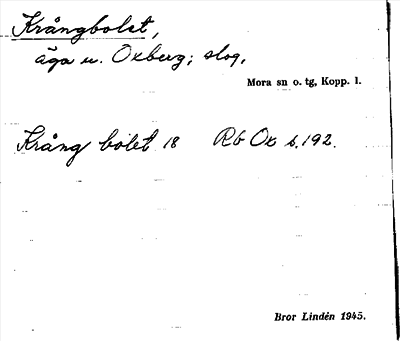 Krångbolet,
äga u. Oxberg; slog,
Mora sn o. tg, Kopp. l.
Krång bolet 18 Rb Ox s. 192.
Bror Lindén 1945.